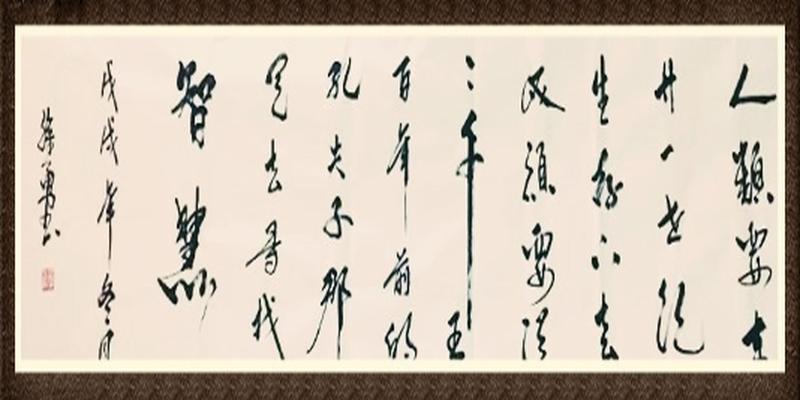 人類要在
廿一世紀
生存下去
必須要從
二千五
百年前的
孔夫子那
里去尋找
智慧
戊戌年冬月
徐勇书